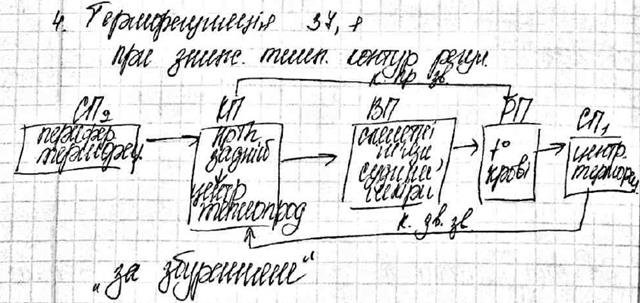 4. Терморегуляція 37,1
при зниж. темп. контур регул.
к. пр. зв.
СП₂ КП ВП РП СП₁
перифер. терморец.
ПРТЛ задній
центр теплопрод
скелетні м'язи судини, шкіри
t° крові
центр. терморец.
к. зв. зв.
"за збуренням"